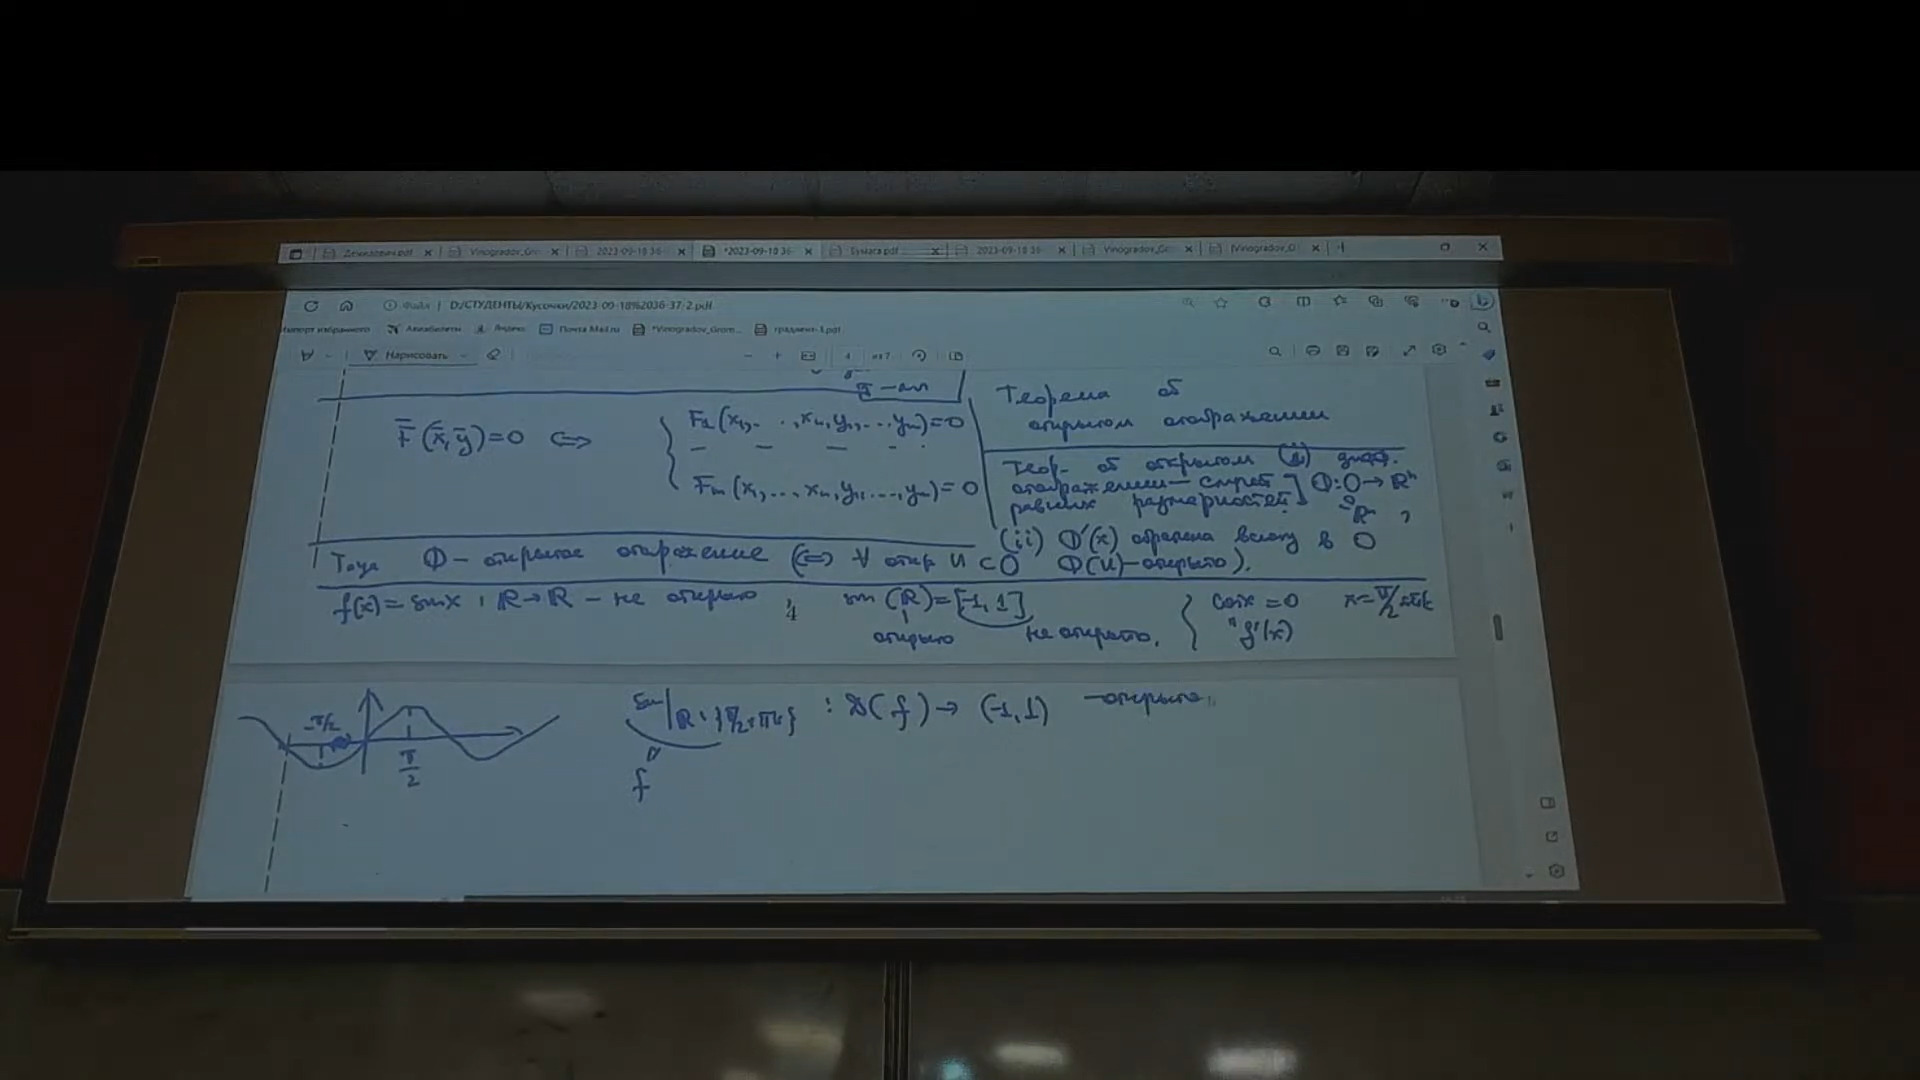 Демидович.pdf
Vinogradov_Gro
2023-09-18 36-
*2023-09-18 36-
Бумага.pdf
2023-09-18 36-
Vinogradov_Gr
(Vinogradov_G
Файл | D:/СТУДЕНТЫ/Кусочки/2023-09-18%2036-37-2.pdf
Импорт избранного
Авиабилеты
Яндекс
Почта Mail.ru
*Vinogradov_Grom...
градиент-1.pdf
Нарисовать
4 из 7
Теорема об
открытом отображении
F̄(x̄,ȳ)=0 ⟺ { F₁(x₁,...,xₙ,y₁,...,yₘ)=0
Fₘ(x₁,...,xₙ,y₁,...,yₘ)=0
Теор- об открытом (i) дифф.
отображении — случай ] Ф:O→ℝⁿ
равных размерностей.
ℝⁿ ,
(ii) Ф'(x) обратима всюду в O
Тогда Ф — открытое отображение (⟺ ∀ откр U⊂O Ф(U)-открыто).
f(x)=sinx : ℝ→ℝ — не открыто , sin(ℝ)=[-1,1] { cosx=0 x=π/2+πk
открыто не открыто. "f'(x)
-π/2
π/2
sin|ℝ∖{π/2+πk} : D(f)→(-1,1) — открыто.
f